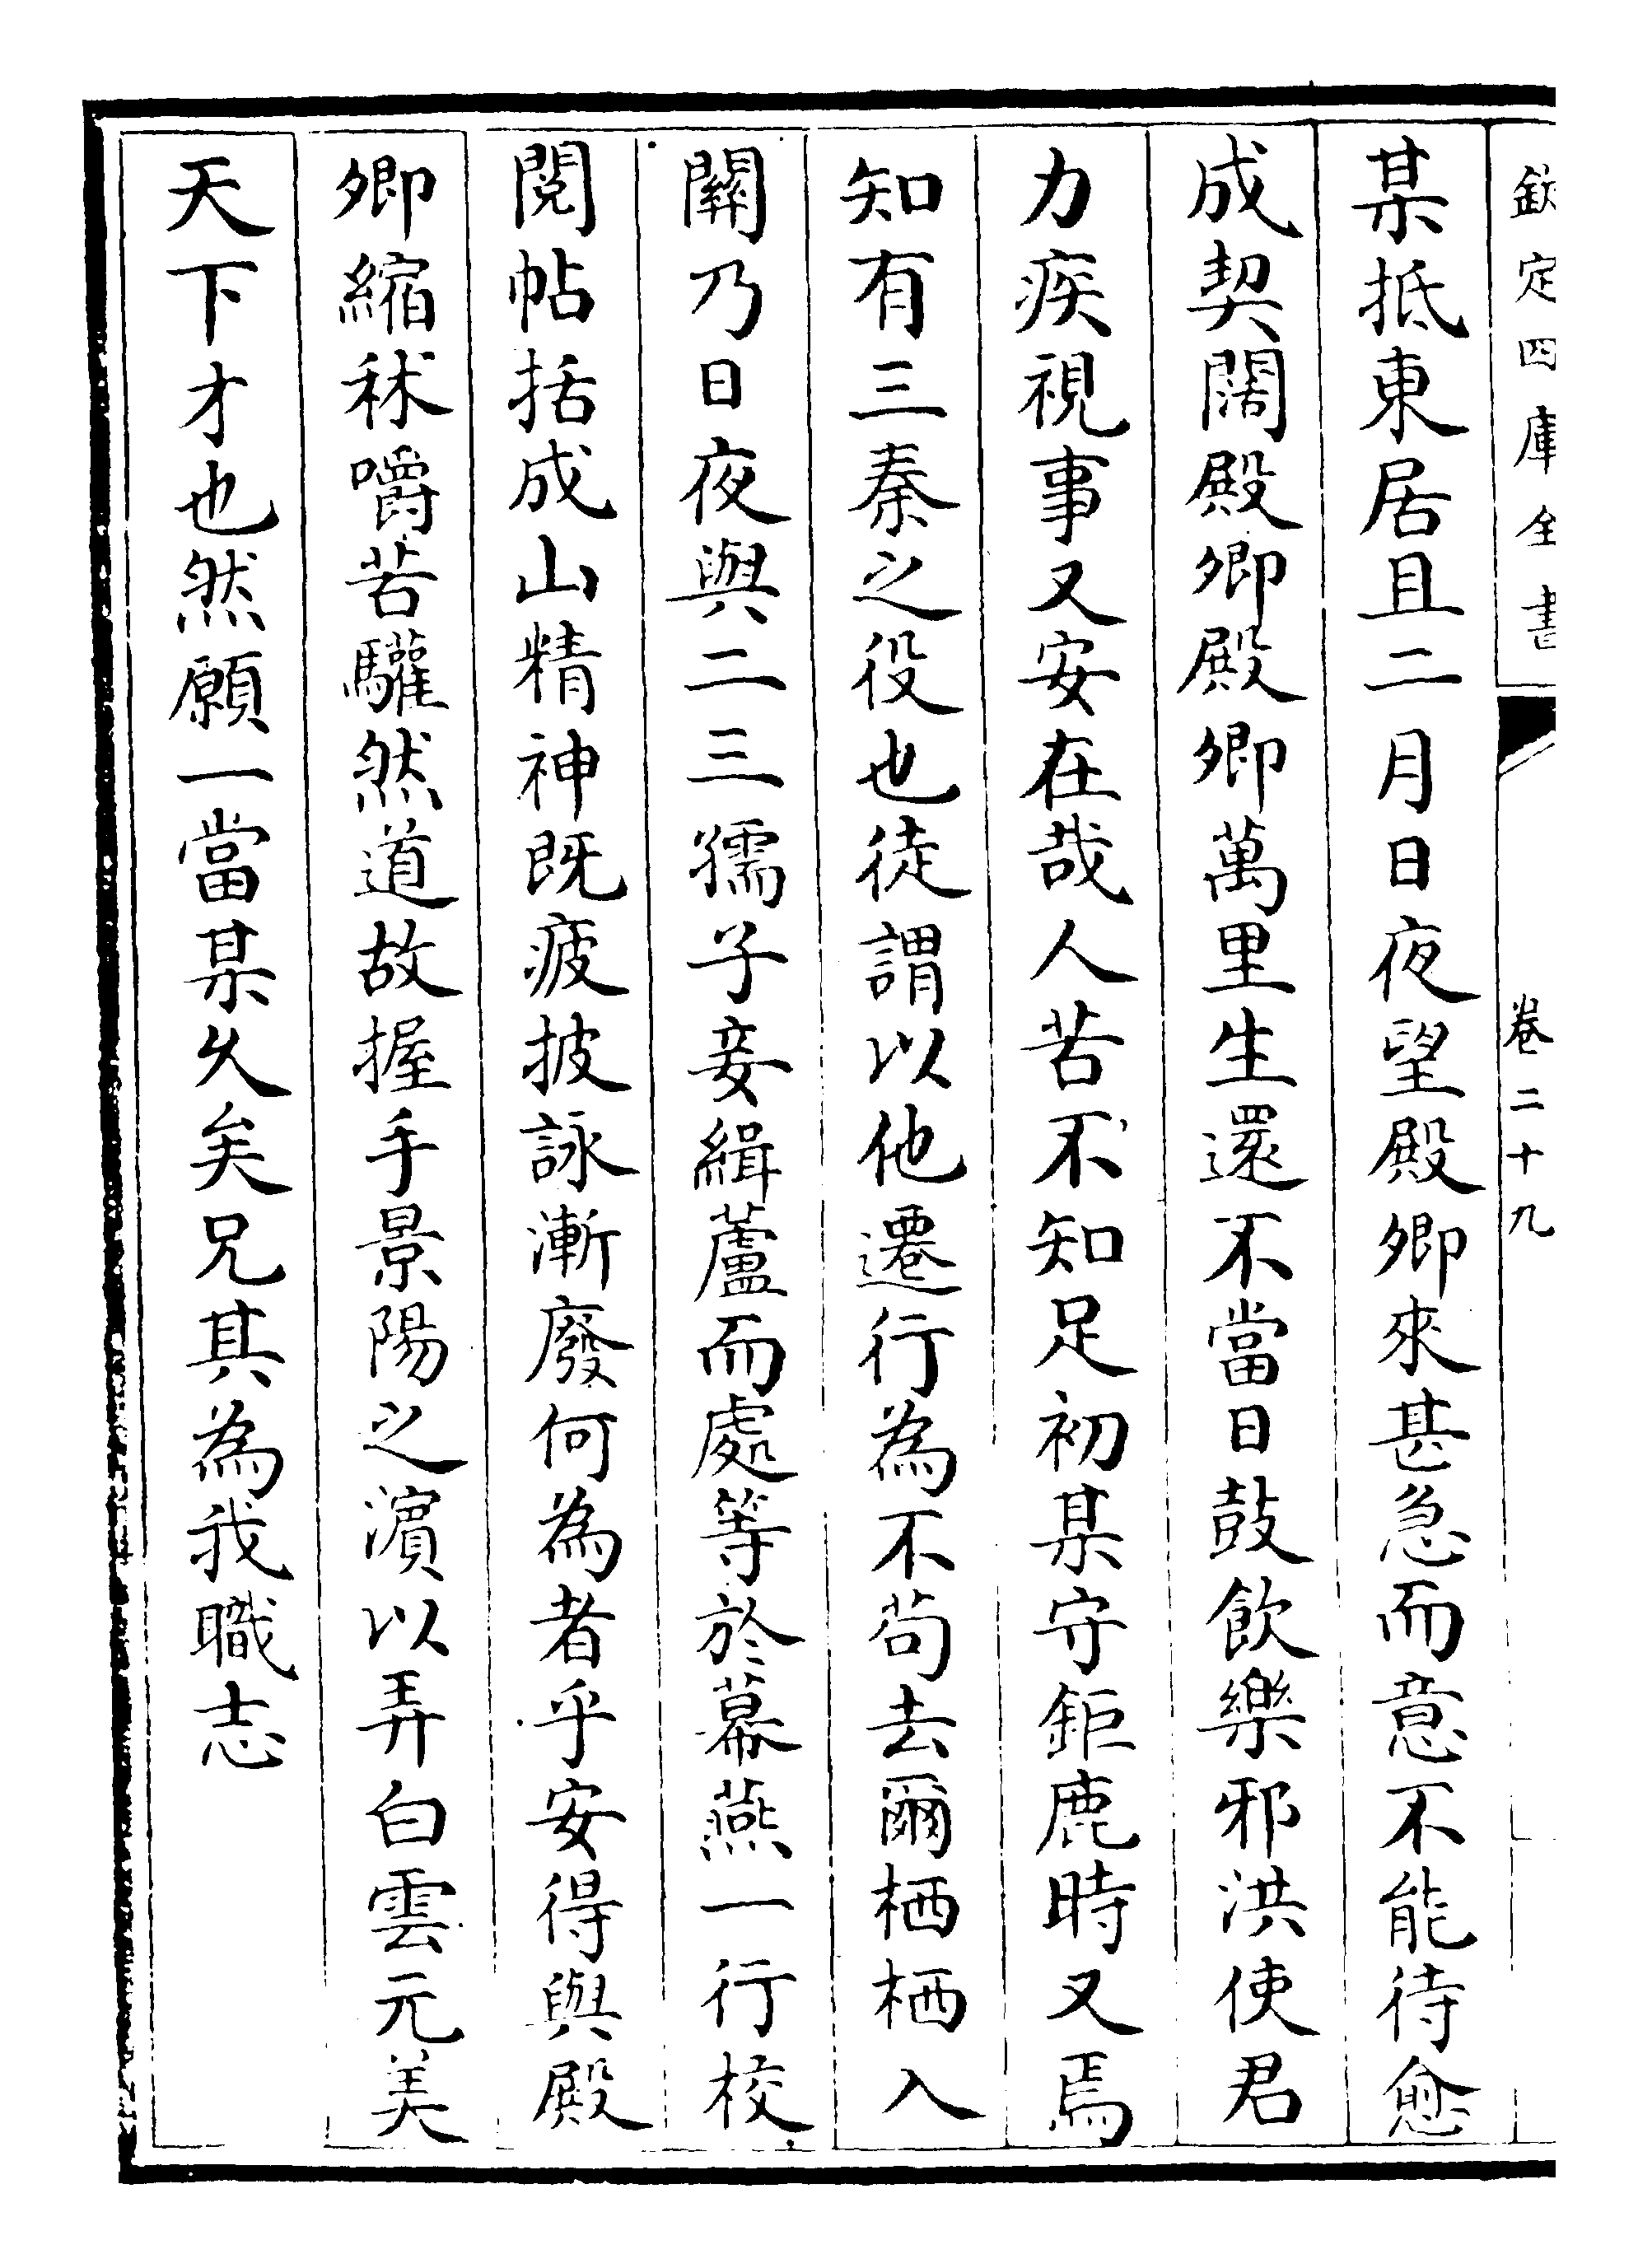 欽定四庫全書
卷二十九
某抵東居且二月日夜望殿卿來甚急而意不能待愈
成契闊殿卿殿卿萬里生還不當日鼓飲樂邪洪使君
力疾視事又安在哉人苦不知足初某守鉅鹿時又焉
知有三秦之役也徒謂以他遷行為不茍去爾栖栖入
關乃日夜與二三孺子妾緝蘆而處等於幕燕一行校
閱帖括成山精神既疲披詠漸廢何為者乎安得與殿
卿縮秫嚼苦驩然道故握手景陽之濵以弄白雲元美
天下才也然願一當某乆矣兄其為我職志